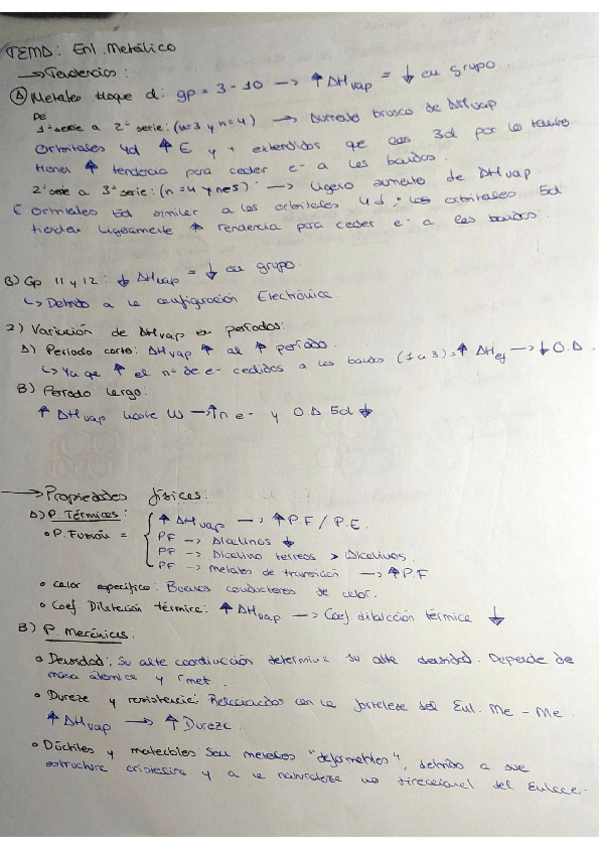 TEMA: Enl. Metálico
→Tendencias:
A) Metales bloque d: gp = 3-10 → ↑ ΔHvap = ↓ en grupo
De 1ª serie a 2ª serie: (n=3 y n=4) → Aumento brusco de ΔHvap
Orbitales 4d ↑E y + extendidos que los 3d por lo tanto
tienen ↑ tendencia para ceder e- a las bandas.
2ª serie a 3ª serie: (n=4 y n=5) → ligero aumento de ΔHvap
Orbitales 5d similar a los orbitales 4d los orbitales 5d
tienden ligeramente ↑ tendencia para ceder e- a las bandas.
B) Gp 11 y 12: ↓ ΔHvap = ↓ en grupo.
↳ Debido a la configuración Electrónica.
2) Variación de ΔHvap en periodos:
A) Periodo corto: ΔHvap ↑ al ↑ periodo.
↳ Ya que ↑ el nº de e- cedidos a las bandas (1 a 3) = ↑ ΔHef → ↓ O.A.
B) Periodo largo:
↑ ΔHvap hasta W → ↑n e- y O.A 5d ↓
→ Propiedades físicas:
A) P. Térmicas:
• P. Fusión = { ↑ ΔHvap → ↑ P.F / P.E.
PF → Alcalinos ↓
PF → Alcalino terreos > Alcalinos.
PF → metales de transición → ↑ P.F
• Calor específico: Buenos conductores de calor.
• Coef Dilatación térmica: ↑ ΔHvap → Coef dilatación térmica ↓
B) P. Mecánicas.
• Densidad: Su alta coordinación determina su alta densidad. Depende de
masa atómica y rmet.
• Dureza y resistencia: Relacionados con la fortaleza del Enl. Me - Me.
↑ ΔHvap → ↑ Dureza.
• Dúctiles y maleables Son metales "deformables", debido a su
estructura cristalina y a la naturaleza no direccional del Enlace.